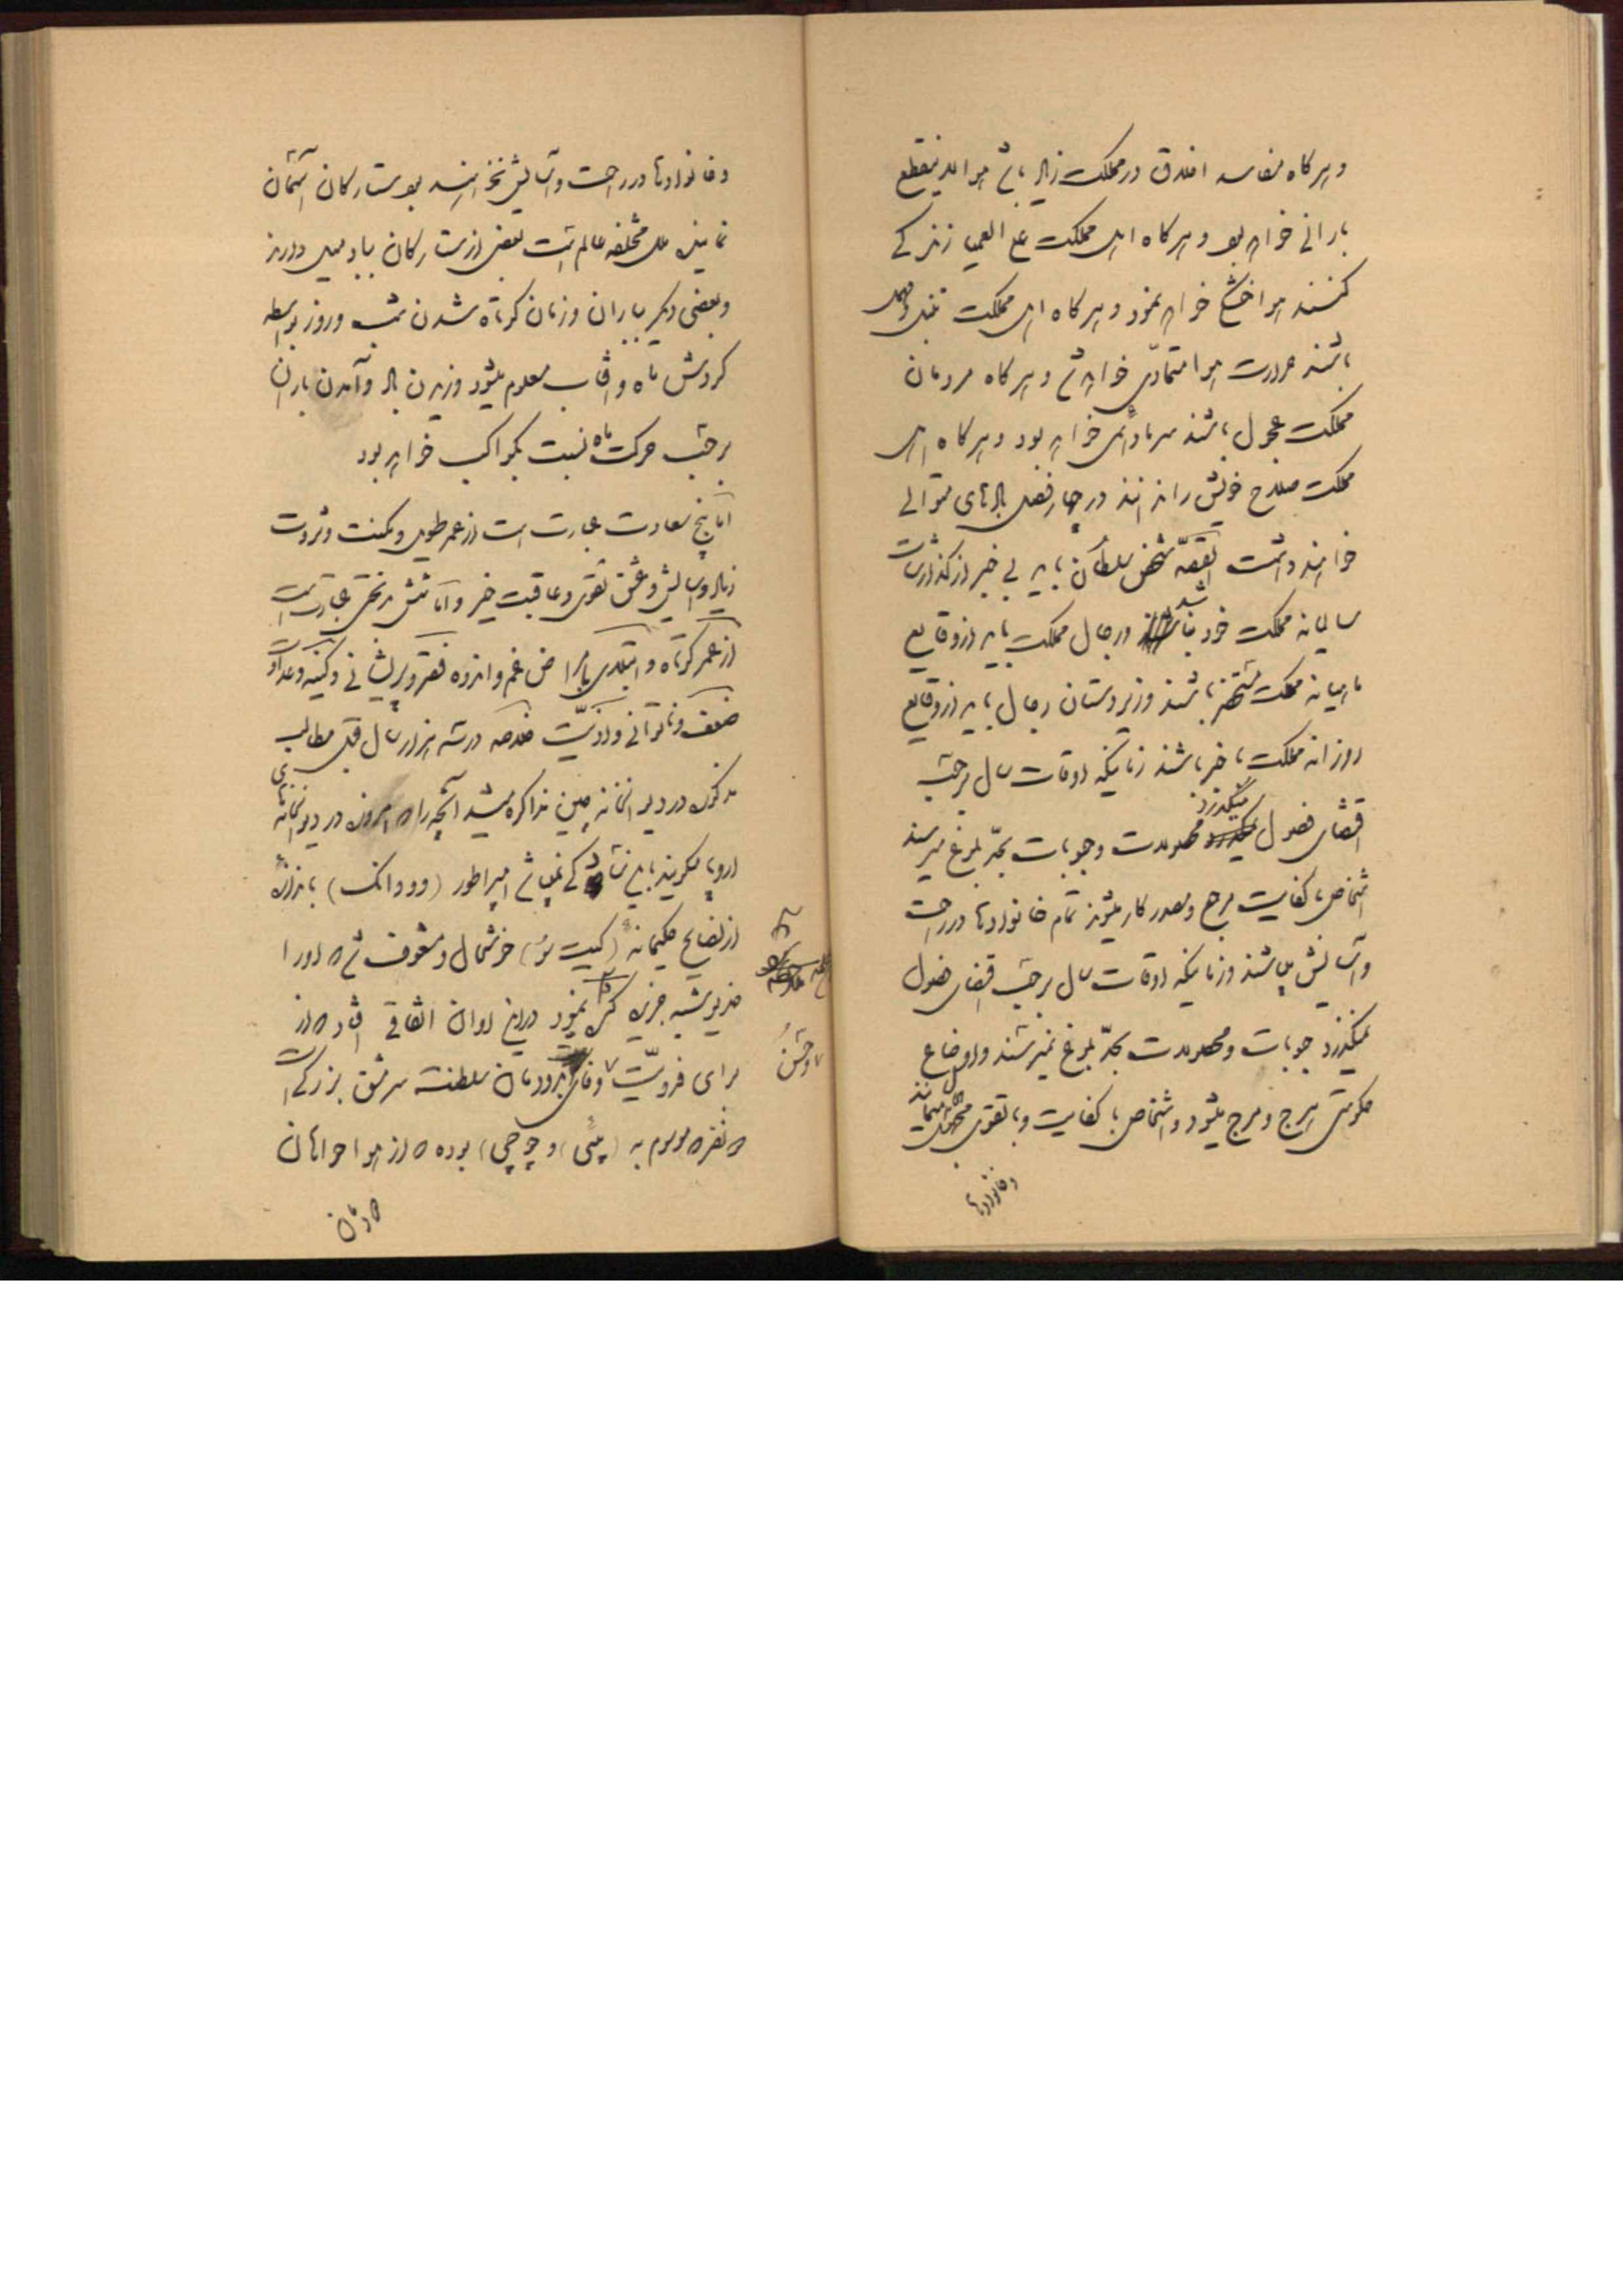 و هر گاه مفاسد اخلاق در مملکت زیاد باشد هوا لاینقطع
بارانی خواهد بود و هر گاه اهل مملکت علی العمیا زندگی
کنند هوا خشک خواهد نمود و هر گاه اهل مملکت تنبل و مهمل
باشند حرارت هوا متمادی خواهد شد و هر گاه مردمان
مملکت عجول باشند سرما دائمی خواهد بود و هر گاه اهل
مملکت صلاح خویش را ندانند در چهار فصل بادهای متوالی
خواهند داشت القصه شخص سلطان باید بی خبر از گذارشات
سالیانه مملکت خود نباشد و رجال مملکت باید از وقایع
ماهیانه مملکت مستحضر باشند و زیردستان رجال باید از وقایع
روزانه مملکت باخبر باشند زمانیکه اوقات سال برحسب
اقتضای فصول میگذرد محصولات و حبوبات بحد بلوغ میرسند
اشخاص با کفایت مرجع و مصدر کار میشوند تمام خانوادها در راحت
و آسایش میباشند و زمانیکه اوقات سال برحسب اقتضای فصول
نمیگذرد حبوبات و محصولات بحد بلوغ نمیرسند و اوضاع
حکومتی هرج و مرج میشود و اشخاص با کفایت و با تقوی مجهول میمانند
و خانوادها
و خانوادها در راحت و آسایش نخواهند بود ستارگان آسمان
نماینده ملل مختلفه عالم است بعضی از ستارگان بباد میل دارند
و بعضی دیگر بباران و زمان کوتاه شدن شب و روز بواسطه
گردش ماه و آفتاب معلوم میشود وزیدن باد و آمدن باران
برحسب حرکت ماه نسبت بکواکب خواهد بود
اما پنج سعادت عبارت است از عمر طویل و مکنت و ثروت
زیاد و آسایش و عشق تقوی و عاقبت خیر و اما شش بدبختی عبارت است
از عمر کوتاه و ابتلای بامراض غم و اندوه فقر و پریشانی و کینه و عداوت
ضعف و ناتوانی و اذیت خلاصه در سه هزار سال قبل مطالب
مذکوره در دیوانخانه چین مذاکره میشد آنچه را که امروزه در دیوانخانهای
اروپا میگویند باید شاد کی نمیباشد امپراطور (وو وانگ) باندازه
از نصایح حکیمانه (کیت سو) خوشحال و مشعوف شد که او را
خدیو شبه جزیره کره نمود در این اوان اتفاقی افتاد که از
برای فدویت و خاندان و دودمان سلطنت سرمشق بزرگی است
دو نفر موسوم به (پیئی) و (چوچی) بوده که از هواخواهان
دودمان